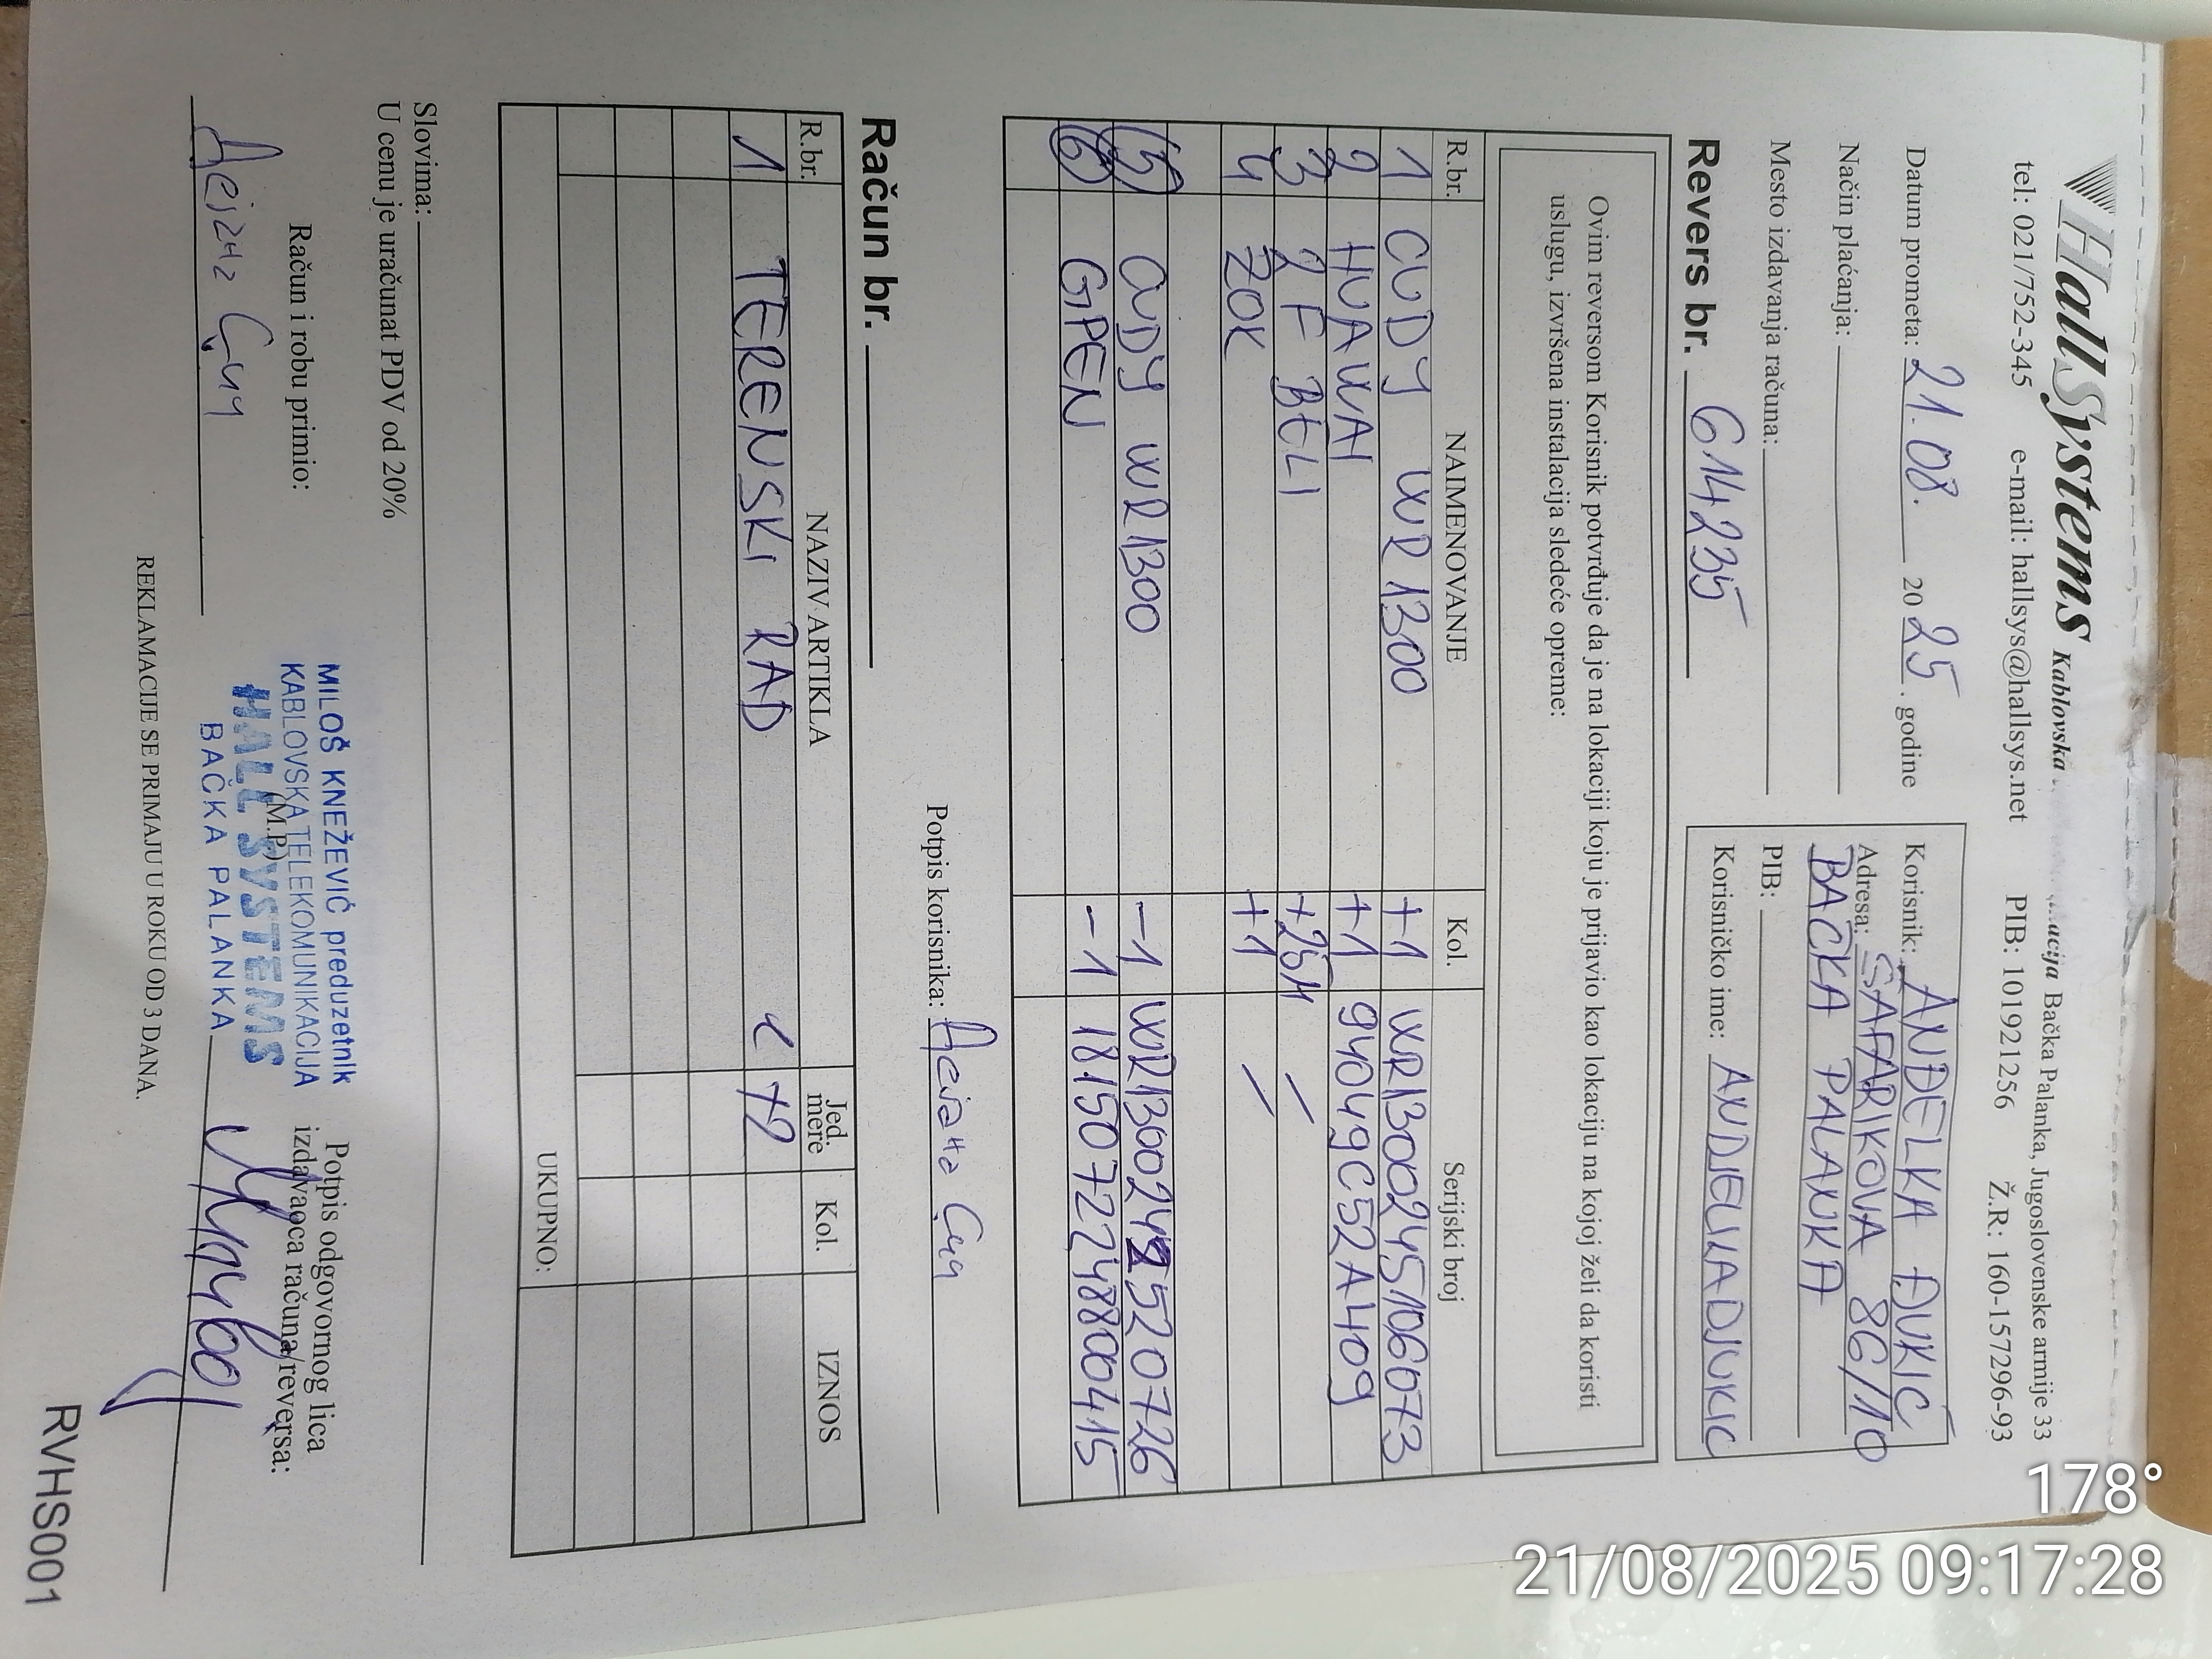 HallSystems Kablovska Bačka Palanka, Jugoslovenske armije 33
tel: 021/752-345 e-mail: hallsys@hallsys.net PIB: 101921256 Ž.R: 160-157296-93
Datum prometa: 21.08. 20 25. godine
Način plaćanja:
Mesto izdavanja računa:
Korisnik: ANĐELKA ĐUKIĆ
Adresa: ŠAFARIKOVA 86/10
BAČKA PALANKA
PIB:
Korisničko ime: ANDJELKADJUKIC
Revers br. 614235
Ovim reversom Korisnik potvrđuje da je na lokaciji koju je prijavio kao lokaciju na kojoj želi da koristi
uslugu, izvršena instalacija sledeće opreme:
R.br. NAIMENOVANJE Kol. Serijski broj
1 CUDY WR 1300 +1 WR1300245106073
2 HUAWAI +1 94049C52A409
3 2F BELI +25M /
4 ZOK +1 /
5 CUDY WR1300 -1
6 GPEN -1 1815072248800415
Potpis korisnika:
Račun br.
R.br. NAZIV ARTIKLA Jed. mere Kol. IZNOS
1 TERENSKI RAD
UKUPNO:
Slovima:
U cenu je uračunat PDV od 20%
Račun i robu primio:
MILOŠ KNEŽEVIĆ preduzetnik
KABLOVSKA TELEKOMUNIKACIJA
(M.P.)
HALL SYSTEMS
BAČKA PALANKA
Potpis odgovornog lica
izdavaoca računa/reversa:
REKLAMACIJE SE PRIMAJU U ROKU OD 3 DANA.
RVHS001
178°
21/08/2025 09:17:28